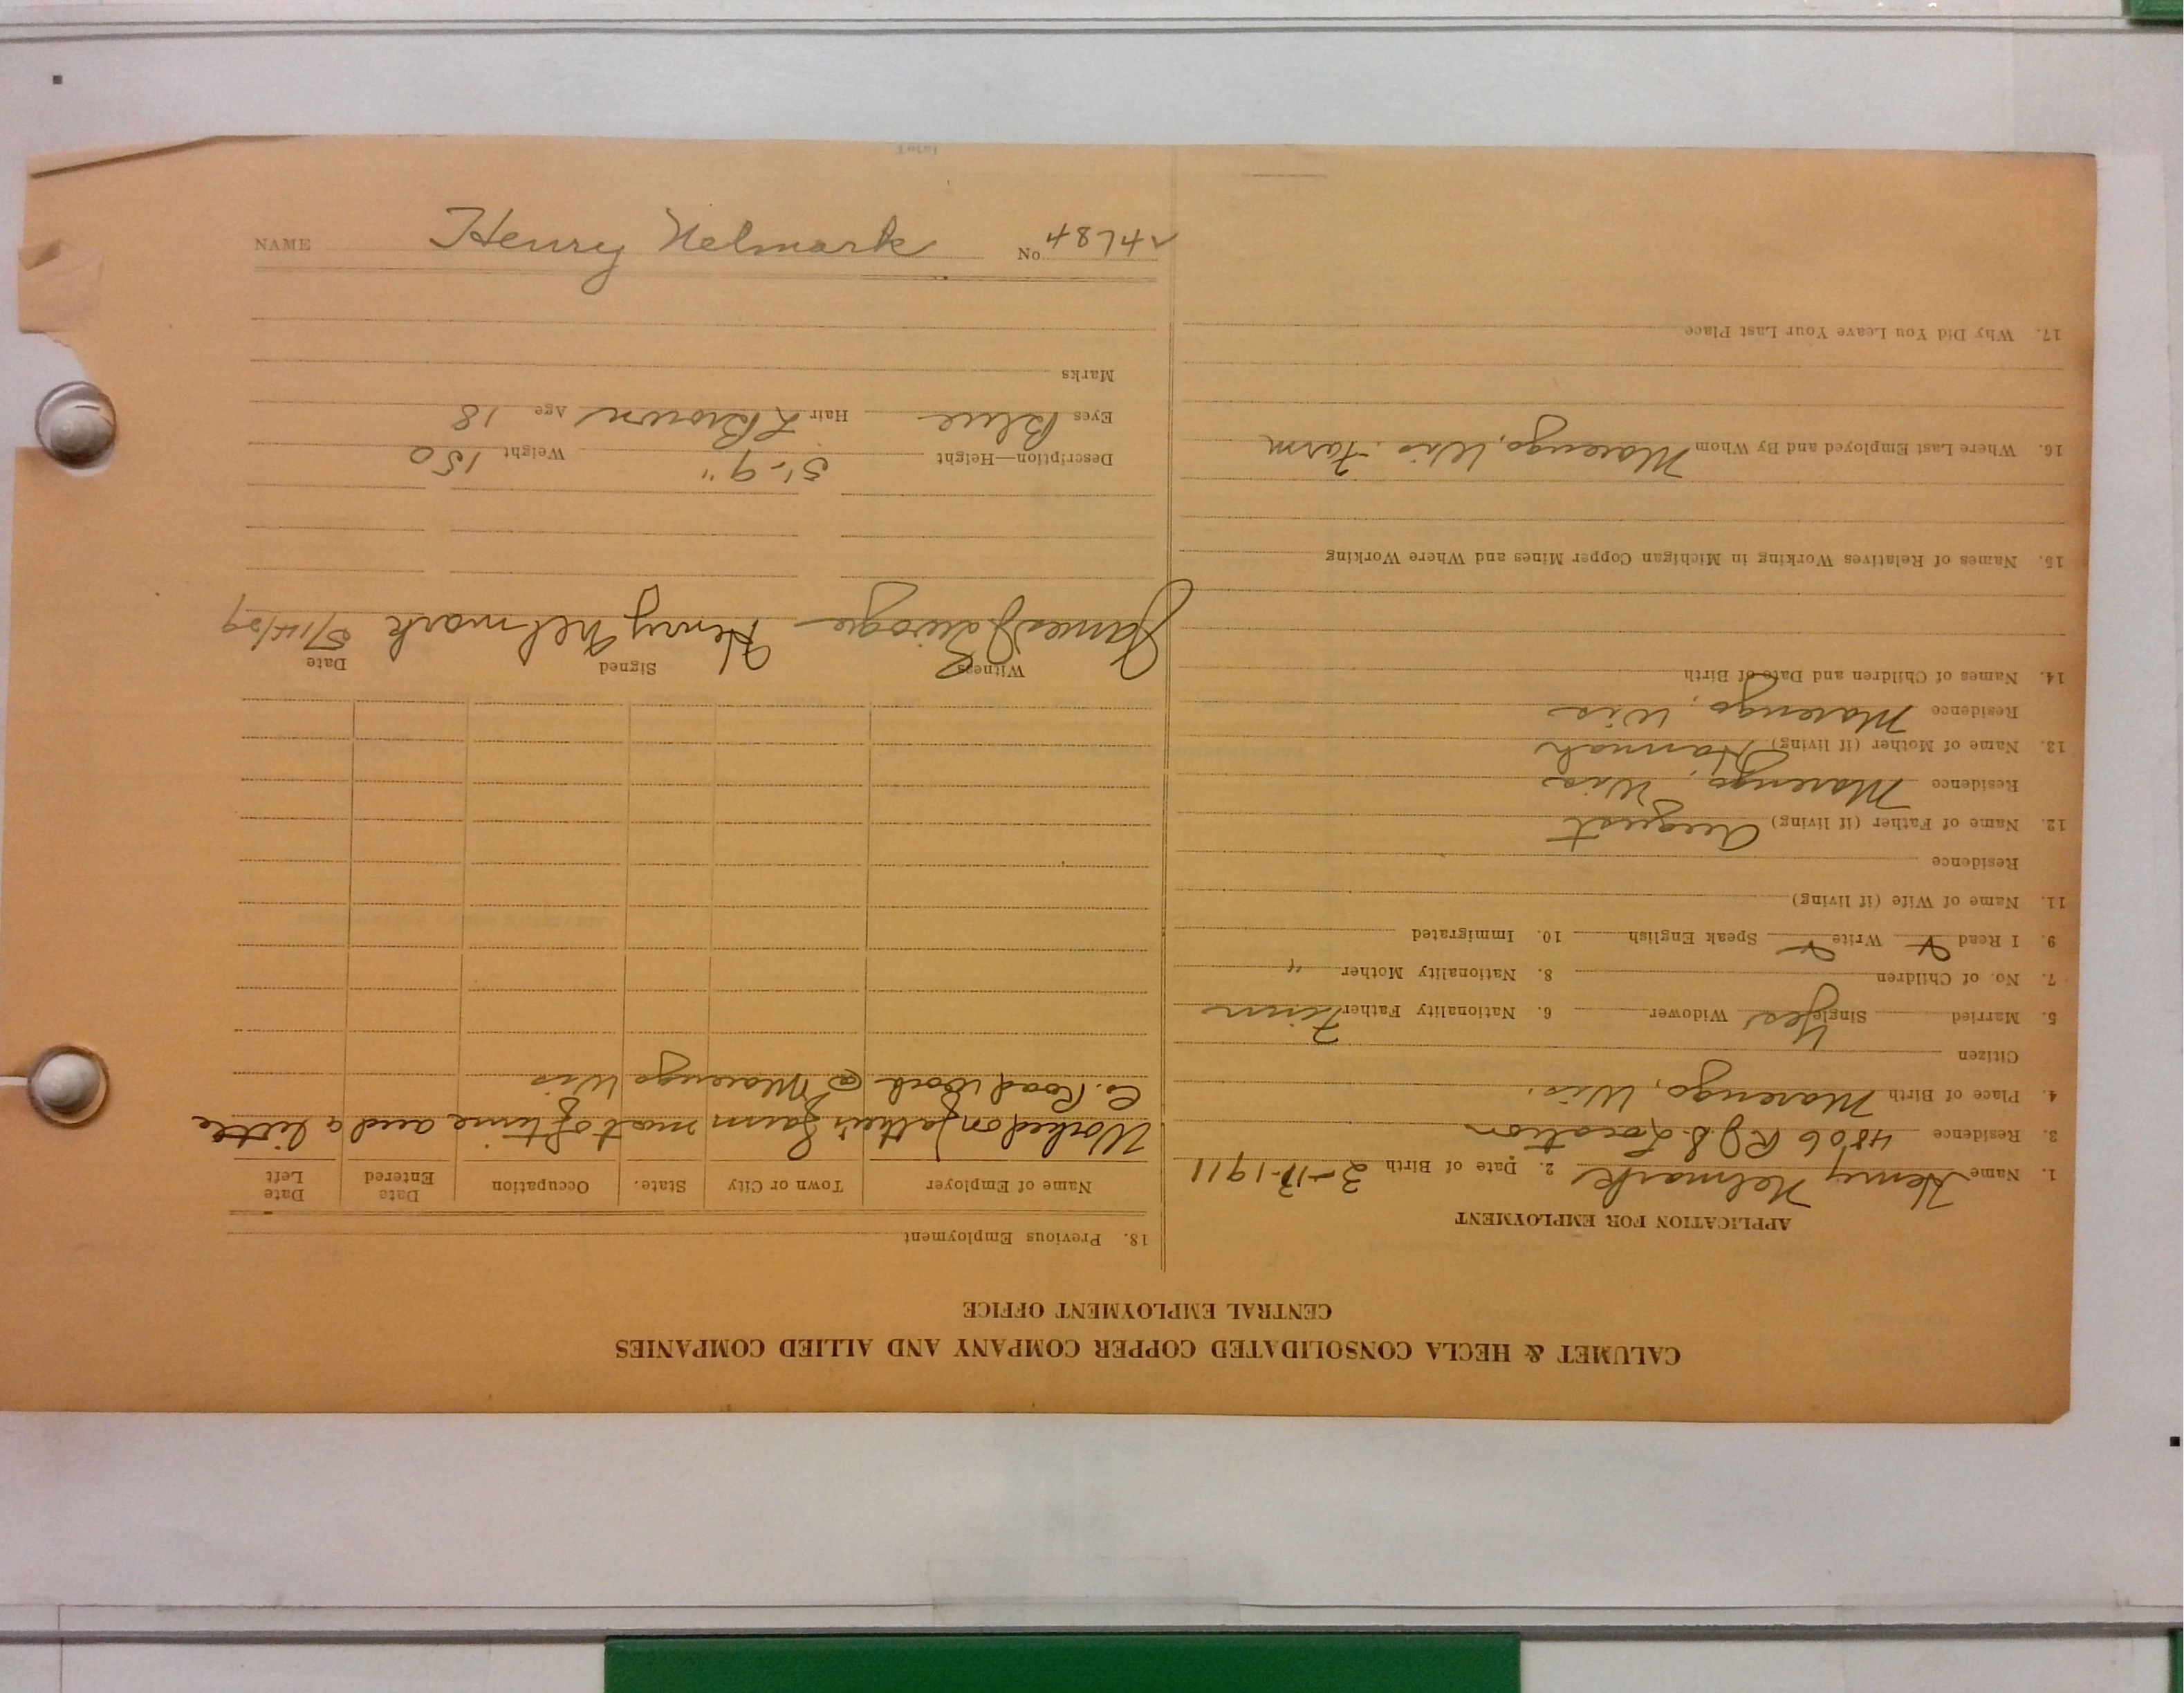 CALUMET & HECLA CONSOLIDATED COPPER COMPANY AND ALLIED COMPANIES
CENTRAL EMPLOYMENT OFFICE
APPLICATION FOR EMPLOYMENT
1. Name Henry Nelmark 2. Date of Birth 3-17-1911
3. Residence 4806 Location
4. Place of Birth Marengo, Wis.
Citizen
5. Married Single Yes Widower 6. Nationality Father Finn
7. No. of Children 8. Nationality Mother "
9. I Read Write Speak English 10. Immigrated
11. Name of Wife (if living)
Residence
12. Name of Father (if living) August
Residence Marengo, Wis
13. Name of Mother (if living) Hannah
Residence Marengo, Wis
14. Names of Children and Date of Birth
15. Names of Relatives Working in Michigan Copper Mines and Where Working
16. Where Last Employed and By Whom Marengo, Wis. Farm
17. Why Did You Leave Your Last Place
18. Previous Employment
Name of Employer Town or City State. Occupation Date Entered Date Left
Worked on father's farm most of time and a little
Co. Road Work @ Marengo Wis
Witness Signed Date
James Henry Nelmark
Description—Height 5'-9" Weight 150
Eyes Blue Hair L Brown Age 18
Marks
NAME Henry Nelmark No 48744
Total